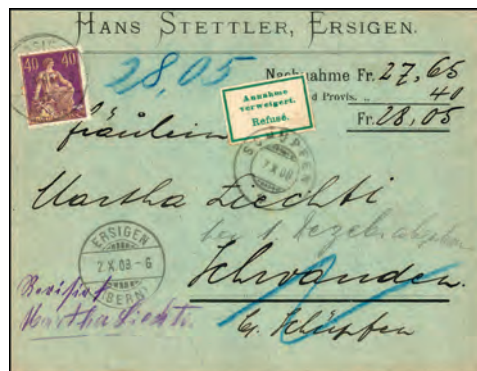 HANS STETTLER, ERSIGEN.
40 40
28,05
Nachnahme Fr. 27,65
d Provis. „ 40
Fr. 28,05
Annahme
verweigert.
Refusé.
Fräulein
SCHÜPFEN
7.X.08
Martha Liechti
bei
ERSIGEN
2.X.08-6
(BERN)
Schwanden.
Martha Liechti
b/ Schüpfen